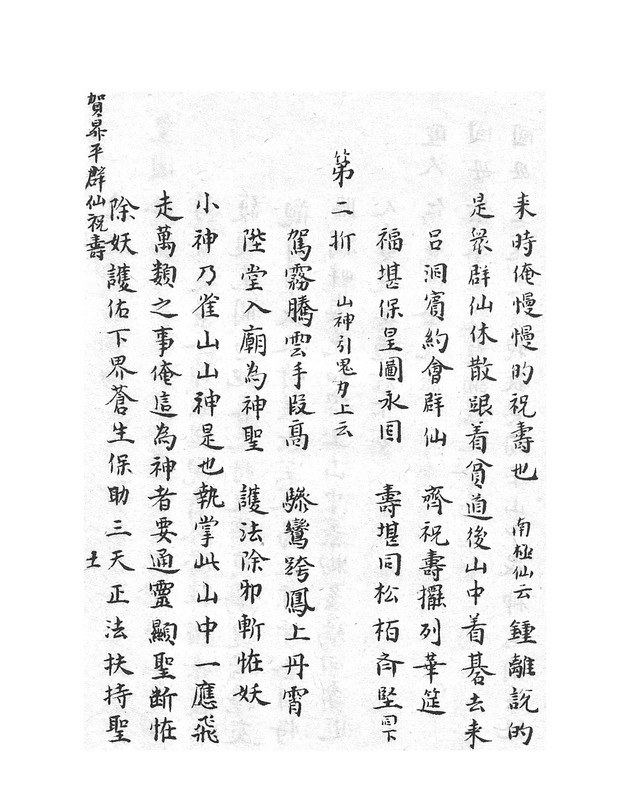 来時俺慢慢的祝壽也 南極仙云鍾離說的
是衆群仙休散跟着貧道後山中着碁去来
吕洞賓約會群仙 齊祝壽擺列華筵
福堪保皇圖永固 壽堪同松柏齊堅同下
第二折 山神引鬼力上云
駕霧騰雲手段高 驂鸞跨鳳上丹霄
陞堂入廟為神聖 護法除邪斬恠妖
小神乃崔山山神是也執掌此山中一應飛
走萬類之事俺這為神者要通靈顯聖断恠
除妖護佑下界蒼生保助三天正法扶持聖
賀昇平群仙祝壽